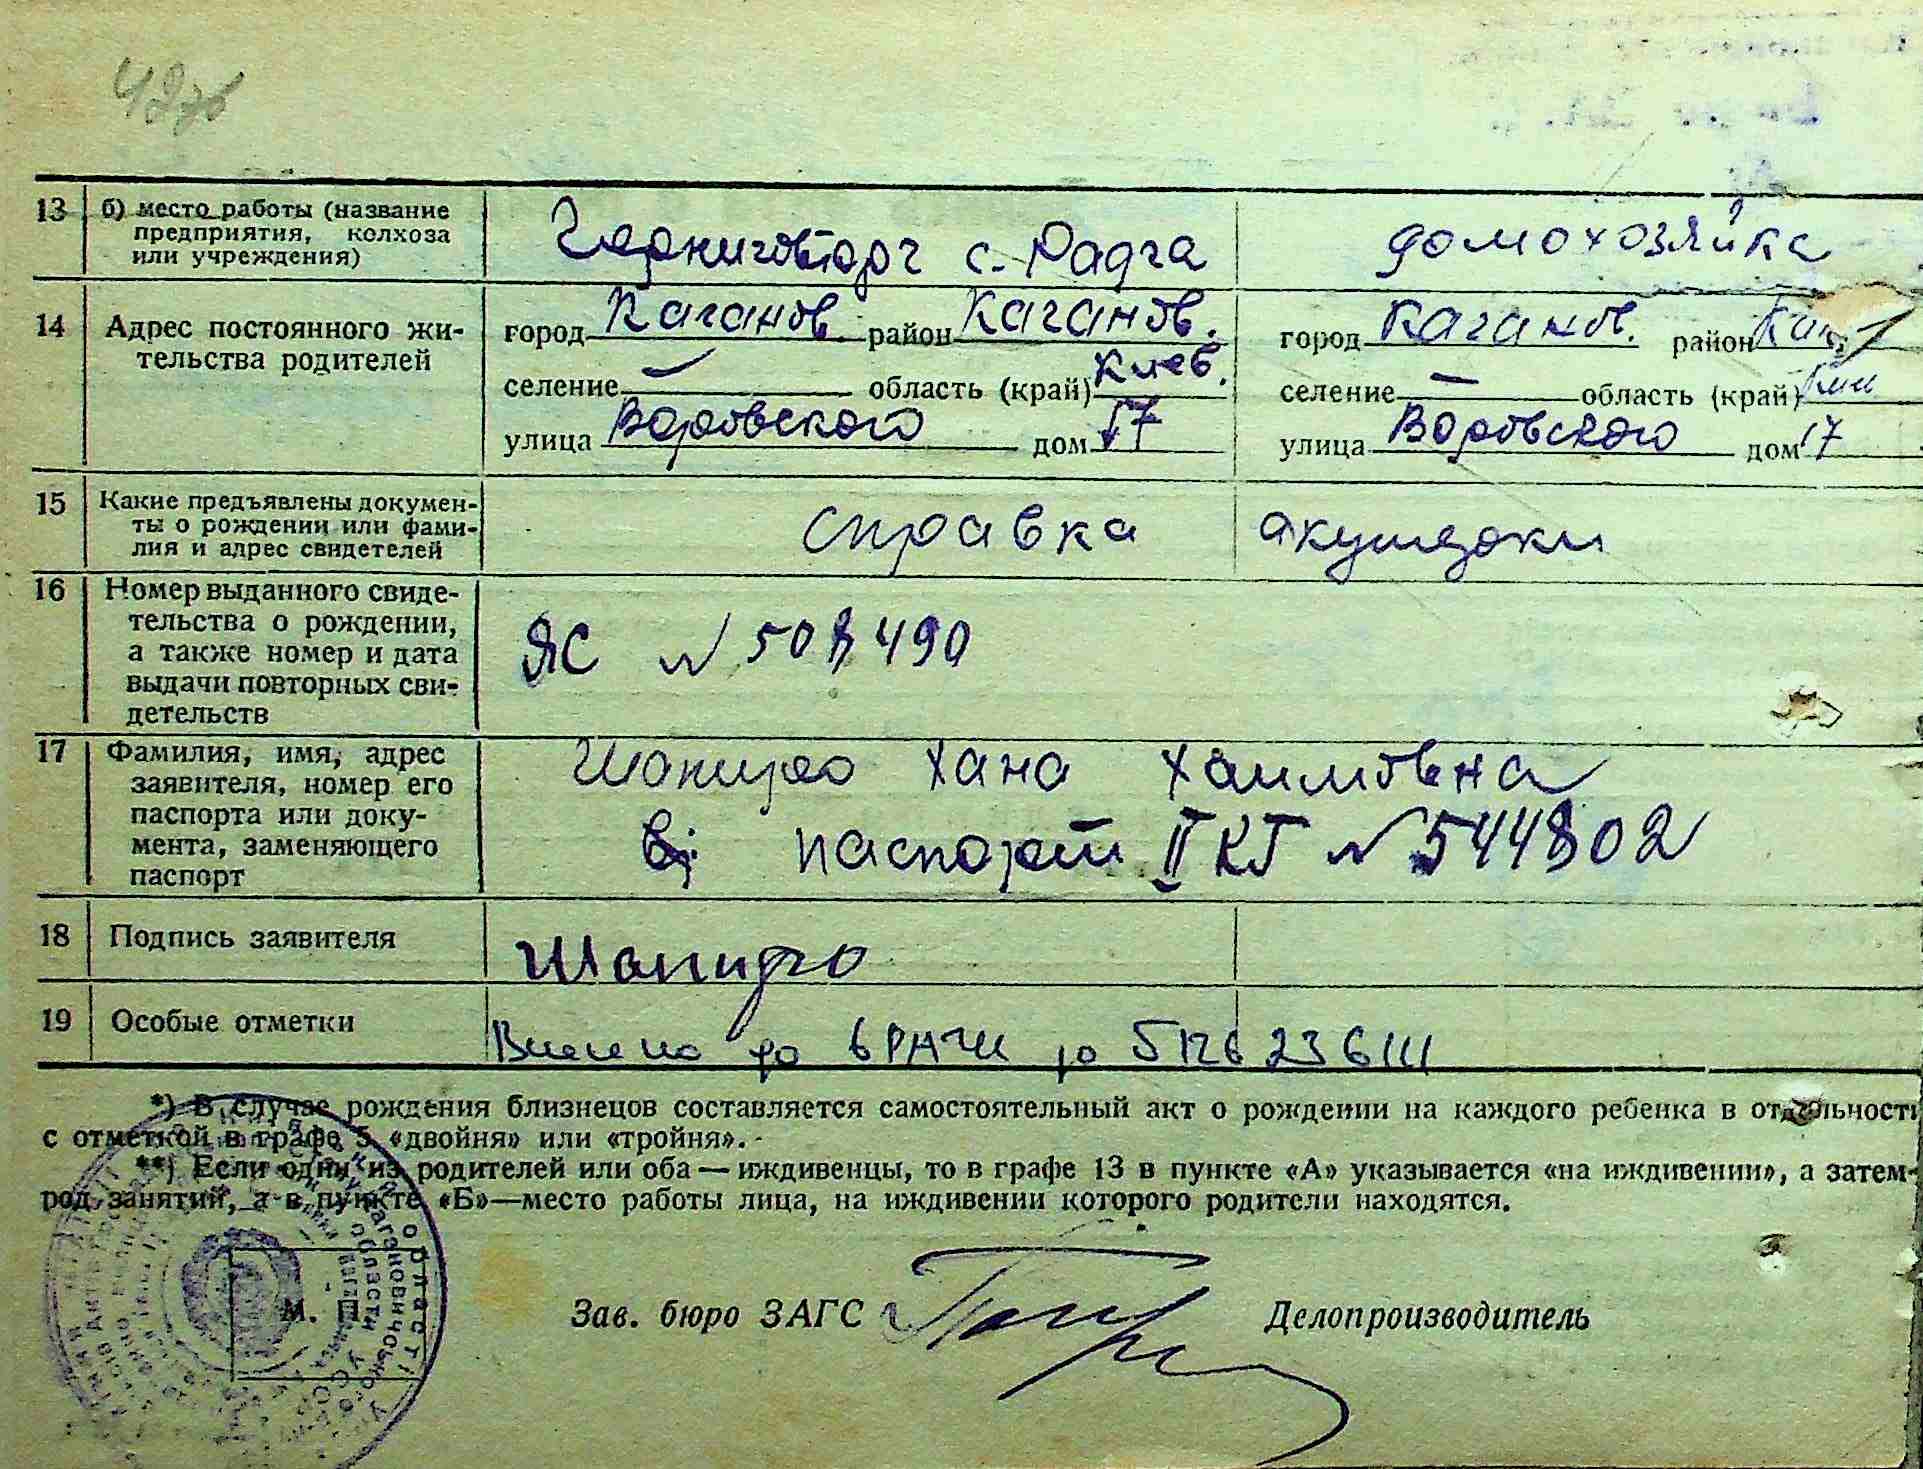 13 б) место работы (название предприятия, колхоза или учреждения) Черниговторг с. Радга домохозяйка
14 Адрес постоянного жительства родителей
город Каганов. район Каганов. город Каганов. район Каг.
селение — область (край) Киев. селение — область (край)
улица Воровского дом 17 улица Воровского дом 17
15 Какие предъявлены документы о рождении или фамилия и адрес свидетелей справка акушерки
16 Номер выданного свидетельства о рождении, а также номер и дата выдачи повторных свидетельств ЯС № 508490
17 Фамилия, имя, адрес заявителя, номер его паспорта или документа, заменяющего паспорт Шапиро Хана Хаимовна
паспорт II КГ № 544802
18 Подпись заявителя Шапиро
19 Особые отметки
*) В случае рождения близнецов составляется самостоятельный акт о рождении на каждого ребенка в отдельности
с отметкой в графе 5 «двойня» или «тройня».
**) Если один из родителей или оба — иждивенцы, то в графе 13 в пункте «А» указывается «на иждивении», а затем—
род занятий, а в пункте «Б»—место работы лица, на иждивении которого родители находятся.
М. П.
Зав. бюро ЗАГС Делопроизводитель